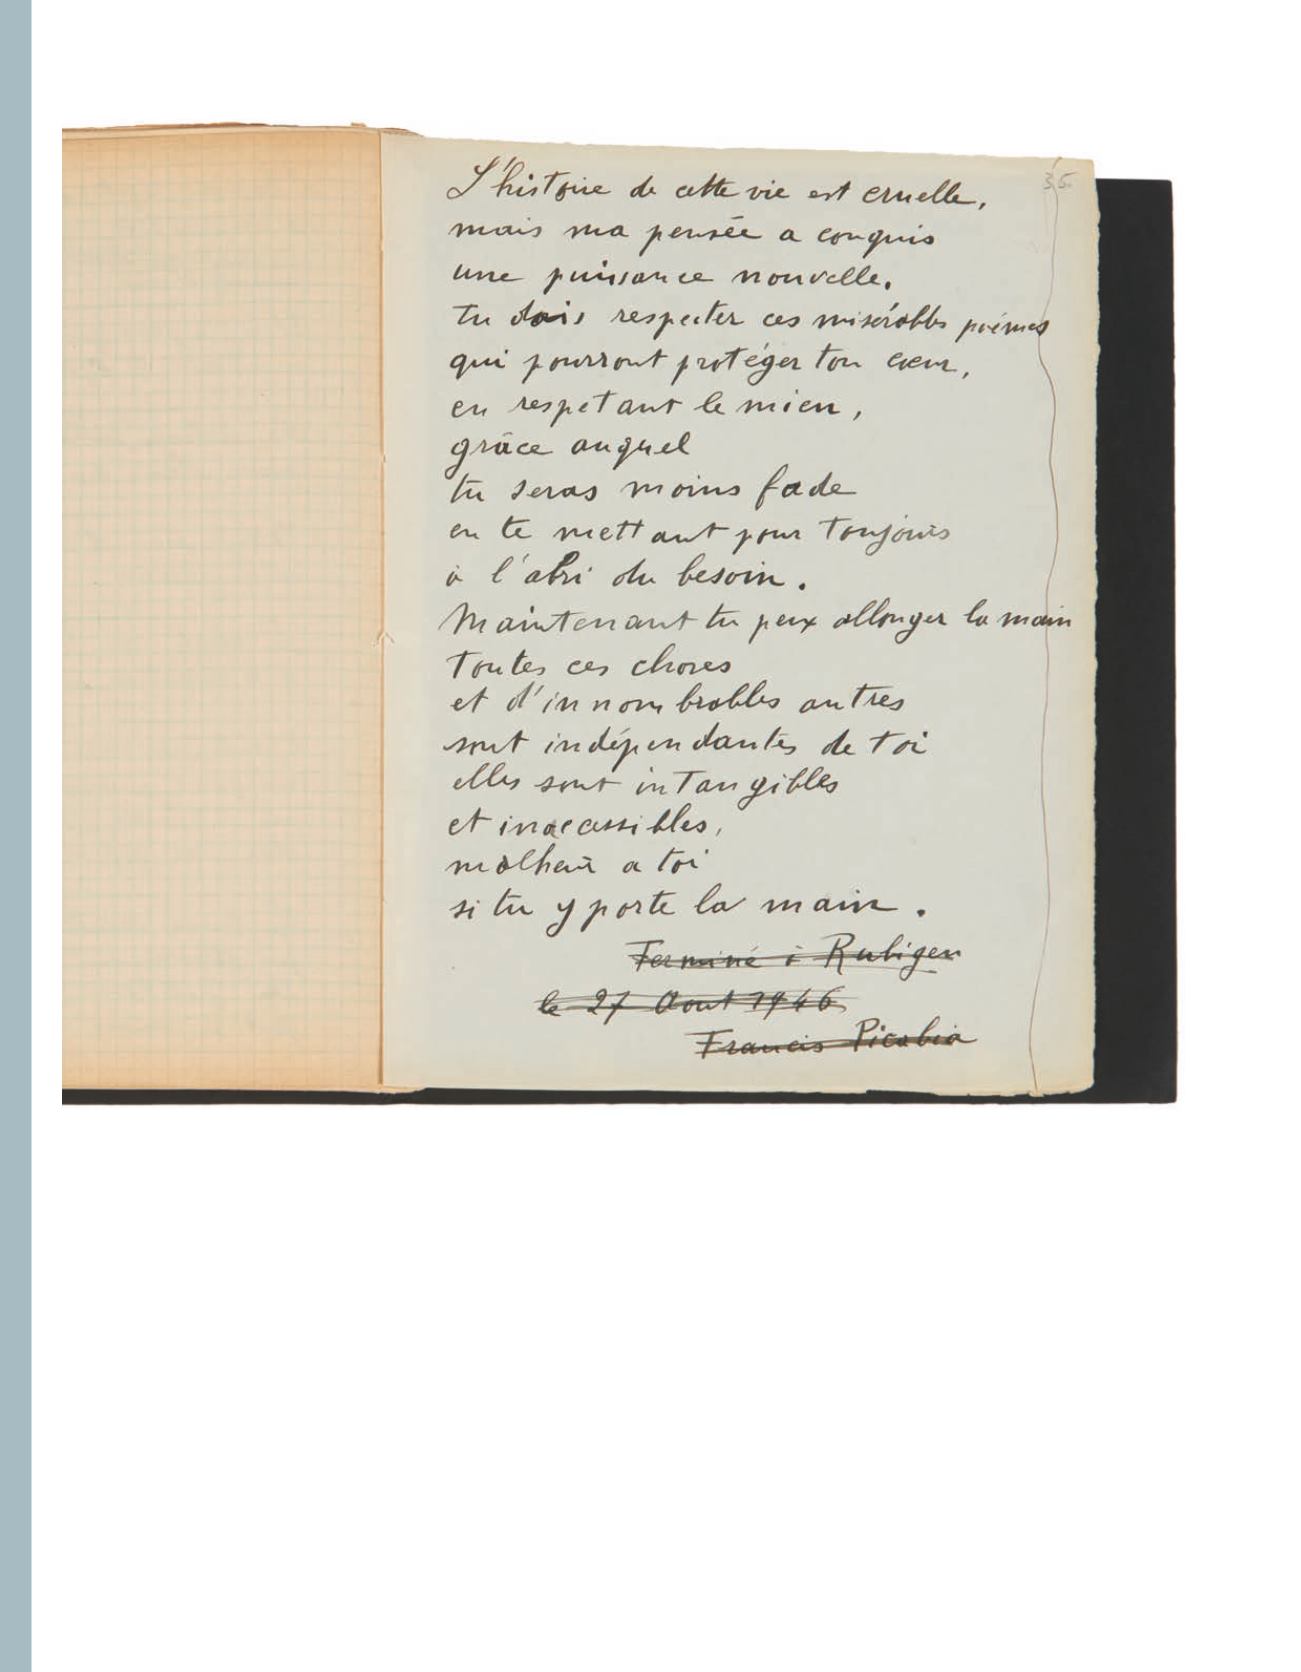 35
L'histoire de cette vie est cruelle,
mais ma pensée a conquis
une puissance nouvelle.
tu dois respecter ces misérables poèmes
qui pourront protéger ton cœur,
en respetant le mien,
grâce auquel
tu seras moins fade
en te mettant pour toujours
à l'abri du besoin.
Maintenant tu peux allonger la main
Toutes ces choses
et d'innombrables autres
sont indépendantes de toi
elles sont intangibles
et inacessibles,
malheur a toi
si tu y porte la main.
Terminé à Rubigen
le 27 Aout 1946
Francis Picabia